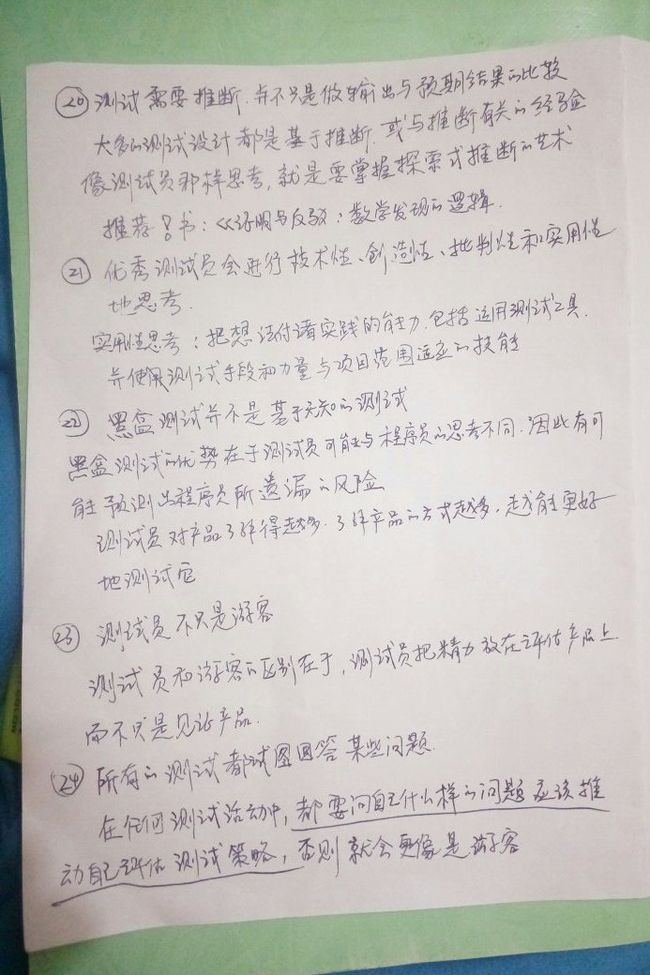 ⑳ 测试需要推断.并不只是做输出与预期结果的比较
大多的测试设计都是基于推断.或与推断有关的经验
像测试员那样思考,就是要掌握探索式推断的艺术
推荐 书:《证明与反驳:数学发现的逻辑.
㉑ 优秀测试员会进行技术性、创造性、批判性和实用性
地思考.
实用性思考:把想法付诸实践的能力.包括运用测试工具.
并使测试手段和力量与项目范围适应的技能
㉒ 黑盒测试并不是基于无知的测试
黑盒测试的优势在于测试员可能与程序员的思考不同.因此有可
能预测出程序员所遗漏的风险
测试员对产品了解得越多.了解产品的方式越多.越能更好
地测试它
㉓ 测试员不只是游客
测试员和游客的区别在于,测试员把精力放在评估产品上
而不只是见证产品.
㉔ 所有的测试都试图回答某些问题.
在任何测试活动中,都要问自己什么样的问题应该推
动自己评估测试策略,否则就会更像是游客